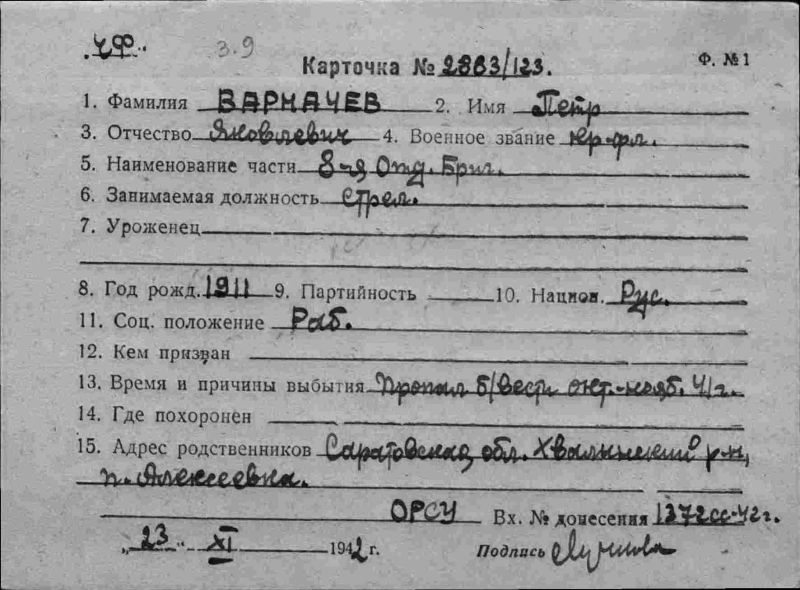 ЧФ. 3.9
Карточка № 2863/123. Ф. №1
1. Фамилия ВАРНАЧЕВ 2. Имя Петр
3. Отчество Яковлевич 4. Военное звание кр-фл.
5. Наименование части 8-я Отд. Бриг.
6. Занимаемая должность стрел.
7. Уроженец
8. Год рожд. 1911 9. Партийность 10. Национ. Рус.
11. Соц. положение Раб.
12. Кем призван
13. Время и причины выбытия Пропал б/вести окт.-нояб. 41г.
14. Где похоронен
15. Адрес родственников Саратовская обл. Хвалынский р-н,
п. Алексеевка.
ОРСУ Вх. № донесения 1372сс-42г.
„23" XI 1942 г. Подпись